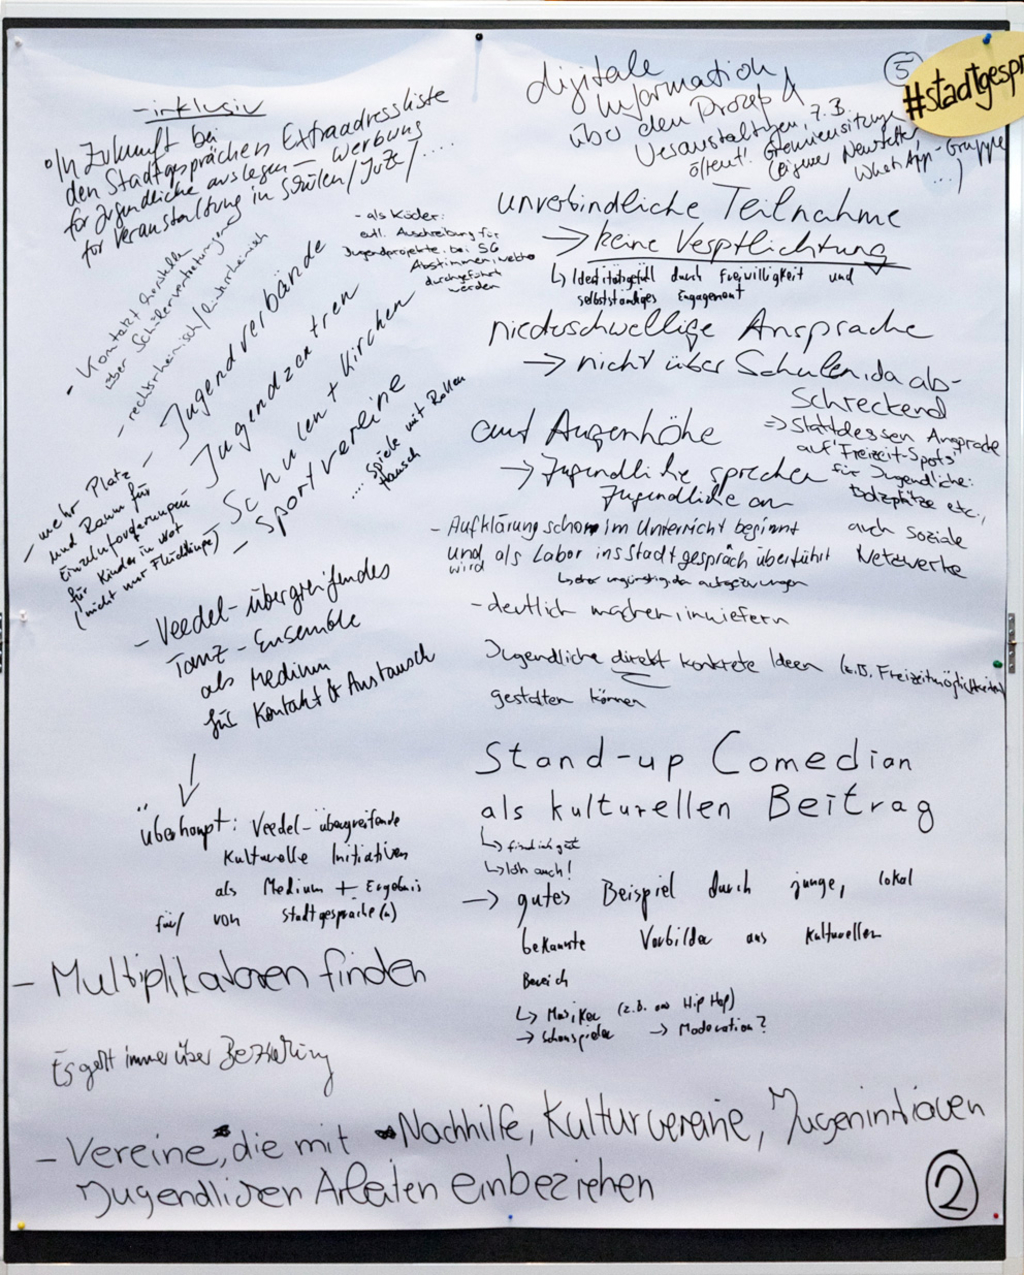 - inklusiv
° In Zukunft bei
den Stadtgesprächen Extraadressliste
für Jugendliche auslegen – Werbung
für Veranstaltung in Schulen/JuZe/....
- als Köder:
evtl. Ausschreibung für
Jugendprojekte, bei SG
Abstimmen, welche
durchgeführt
werden
- Kontakt herstellen
über Schülervertretungen
- rechtsrheinisch/linksrheinisch
- Jugendverbände
- Jugendzentren
- Schulen + Kirchen
- Sportvereine
.... Spiele mit Rollen
tausch
- mehr Platz
und Raum für
Einzelforderungen
für Kinder in Not
(nicht nur Flüchtlinge)
- Veedel-übergreifendes
Tanz-Ensemble
als Medium
für Kontakt & Austausch
überhaupt: Veedel-übergreifende
Kulturelle Initiativen
als Medium + Ergebnis
für/ von Stadtgespräche(n)
- Multiplikatoren finden
Es geht immer über Beziehung
- Vereine, die mit Nachhilfe, Kulturvereine, Jugeninitiaven
Jugendlichen Arbeiten einbeziehen
5
#stadtgespr
digitale
Information
über den Prozeß &
Veranstaltgen, z.B.
öffentl. Gremiensitzung
(Eigener Newsletter,
WhatsApp-Gruppe
...)
unverbindliche Teilnahme
→ keine Verpflichtung
↳ Identitätsgefühl durch Freiwilligkeit und
selbstständiges Engagement
niederschwellige Ansprache
→ nicht über Schulen, da ab-
schreckend
⇒ Stattdessen Ansprache
auf "Freizeit-Spots"
für Jugendliche:
Bolzplätze etc.,
auch soziale
Netzwerke
auf Augenhöhe
→ Jugendliche sprechen
Jugendliche an
- Aufklärung schon im Unterricht beginnt
und als Labor ins Stadtgespräch überführt
wird
↳ eher ungünstig, da aufgezwungen
- deutlich machen, inwiefern
Jugendliche direkt konkrete Ideen (z.B. Freizeitmöglichkeiten)
gestalten können
Stand-up Comedian
als kulturellen Beitrag
↳ find ich gut
↳ Ich auch!
→ gutes Beispiel durch junge, lokal
bekannte Vorbilder aus kulturellen
Bereich
↳ Musiker (z.B. aus Hip Hop)
→ Schauspieler → Moderation?
2